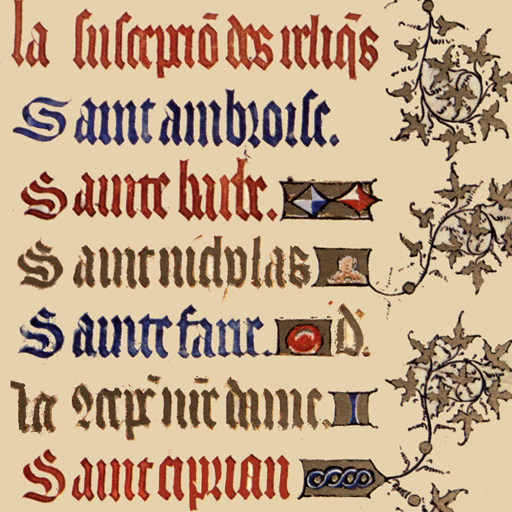 la susception des reliq̃s
Saint ambroise.
Sainte barbe.
Saint nicholas
Sainte fare. d'.
la 9cep̃ nr̃e dame.
Saint ciprian